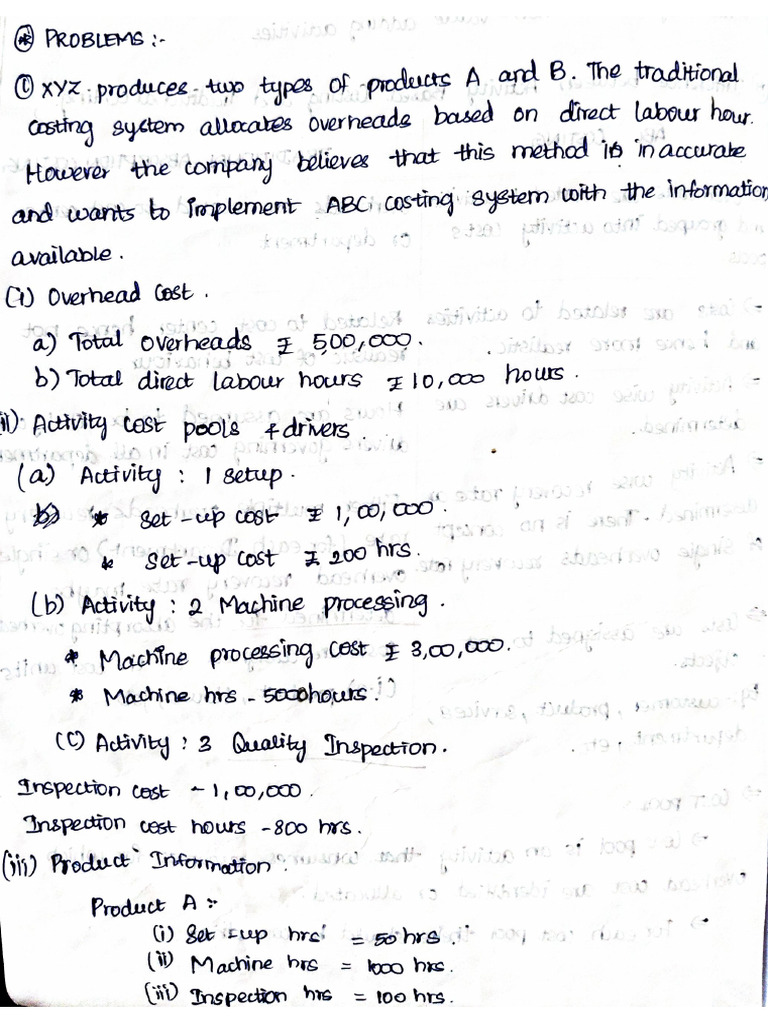 * PROBLEMS :-
① XYZ produces two types of products A and B. The traditional
costing system allocates overheads based on direct labour hour.
However the company believes that this method is inaccurate
and wants to implement ABC costing system with the information
available.
(i) Overhead Cost.
a) Total overheads ₹ 500,000.
b) Total direct labour hours ₹ 10,000 hours.
(ii) Activity cost pools & drivers
(a) Activity : 1 setup.
* Set-up cost ₹ 1,00,000.
* Set-up cost ₹ 200 hrs.
(b) Activity : 2 Machine processing.
* Machine processing cost ₹ 3,00,000.
* Machine hrs - 5000 hours.
(C) Activity : 3 Quality Inspection.
Inspection cost - 1,00,000.
Inspection cost hours - 800 hrs.
(iii) Product Information.
Product A :-
(i) Set-up hrs = 50 hrs.
(ii) Machine hrs = 1000 hrs.
(iii) Inspection hrs = 100 hrs.